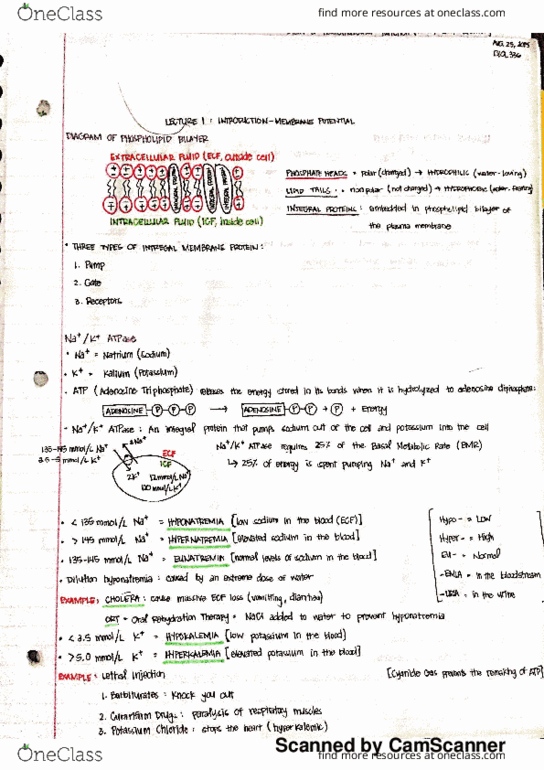 OneClass
find more resources at oneclass.com
AUG. 25, 2015
BIOL 336
LECTURE 1 : INTRODUCTION - MEMBRANE POTENTIAL
DIAGRAM OF PHOSPHOLIPID BILAYER
EXTRACELLULAR FLUID (ECF, outside cell)
INTRACELLULAR FLUID (ICF, inside cell)
PHOSPHATE HEADS = polar (charged) → HYDROPHILIC (water-loving)
LIPID TAILS : = nonpolar (not charged) → HYDROPHOBIC (water-fearing)
INTEGRAL PROTEINS : embedded in phospholipid bilayer of
the plasma membrane
• THREE TYPES OF INTEGRAL MEMBRANE PROTEIN :
1. Pump
2. Gate
3. Receptors
Na⁺/K⁺ ATPase
• Na⁺ = Natrium (Sodium)
• K⁺ = Kalium (Potassium)
• ATP (Adenosine Triphosphate) releases the energy stored in its bonds when it is hydrolyzed to adenosine diphosphate:
ADENOSINE - P - P - P → ADENOSINE - P - P + P + Energy
• Na⁺/K⁺ ATPase : An integral protein that pumps sodium out of the cell and potassium into the cell
135-145 mmol/L Na⁺
3.5-5 mmol/L K⁺
3Na⁺
ECF
ICF
2K⁺
12 mmol/L Na⁺
120 mmol/L K⁺
Na⁺/K⁺ ATPase requires 25% of the Basal Metabolic Rate (BMR)
↳ 25% of energy is spent pumping Na⁺ and K⁺
• < 135 mmol/L Na⁺ = HYPONATREMIA [low sodium in the blood (ECF)]
• > 145 mmol/L Na⁺ = HYPERNATREMIA [elevated sodium in the blood]
• 135-145 mmol/L Na⁺ = EUNATREMIA [normal levels of sodium in the blood]
• Dilution hyponatremia : caused by an extreme dose of water
Hypo- = LOW
Hyper- = High
EU- = Normal
-EMIA = in the bloodstream
-URIA = in the urine
EXAMPLE: CHOLERA : cause massive ECF loss (vomiting, diarrhea)
ORT = Oral Rehydration Therapy = NaCl added to water to prevent hyponatremia
• < 3.5 mmol/L K⁺ = HYPOKALEMIA [low potassium in the blood]
• > 5.0 mmol/L K⁺ = HYPERKALEMIA [elevated potassium in the blood]
EXAMPLE : Lethal Injection
[Cyanide Gas prevents the remaking of ATP]
1. Barbiturates : Knock you out
2. Drugs : paralysis of respiratory muscles
3. Potassium Chloride : stops the heart (hyperkalemic)
Scanned by CamScanner
OneClass
find more resources at oneclass.com